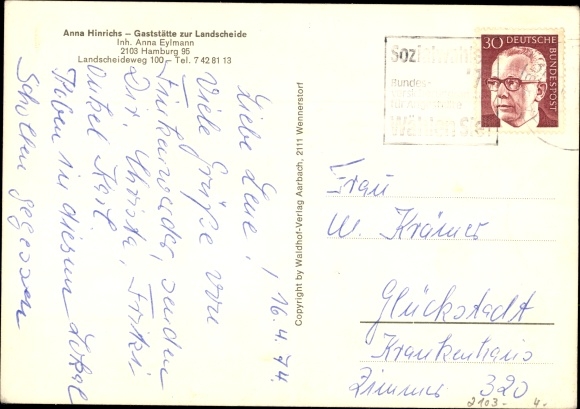 Anna Hinrichs – Gaststätte zur Landscheide
Inh. Anna Eylmann
2103 Hamburg 95
Landscheideweg 100 – Tel. 7 42 81 13
Liebe Lene! 16.4.74.
Viele Grüße von
Finkenwerder, senden
Dir, Christa, Fritz
Onkel Karl.
Haben in diesem Lokal
Schollen gegessen
Copyright by Waldhof-Verlag Aarbach, 2111 Wennerstorf
Sozialwahlen
Bundes-
Wählen Sie!
30 DEUTSCHE
BUNDESPOST
Frau
W. Krämer
Glückstadt
Krankenhaus
Zimmer 320
2103- 4.-